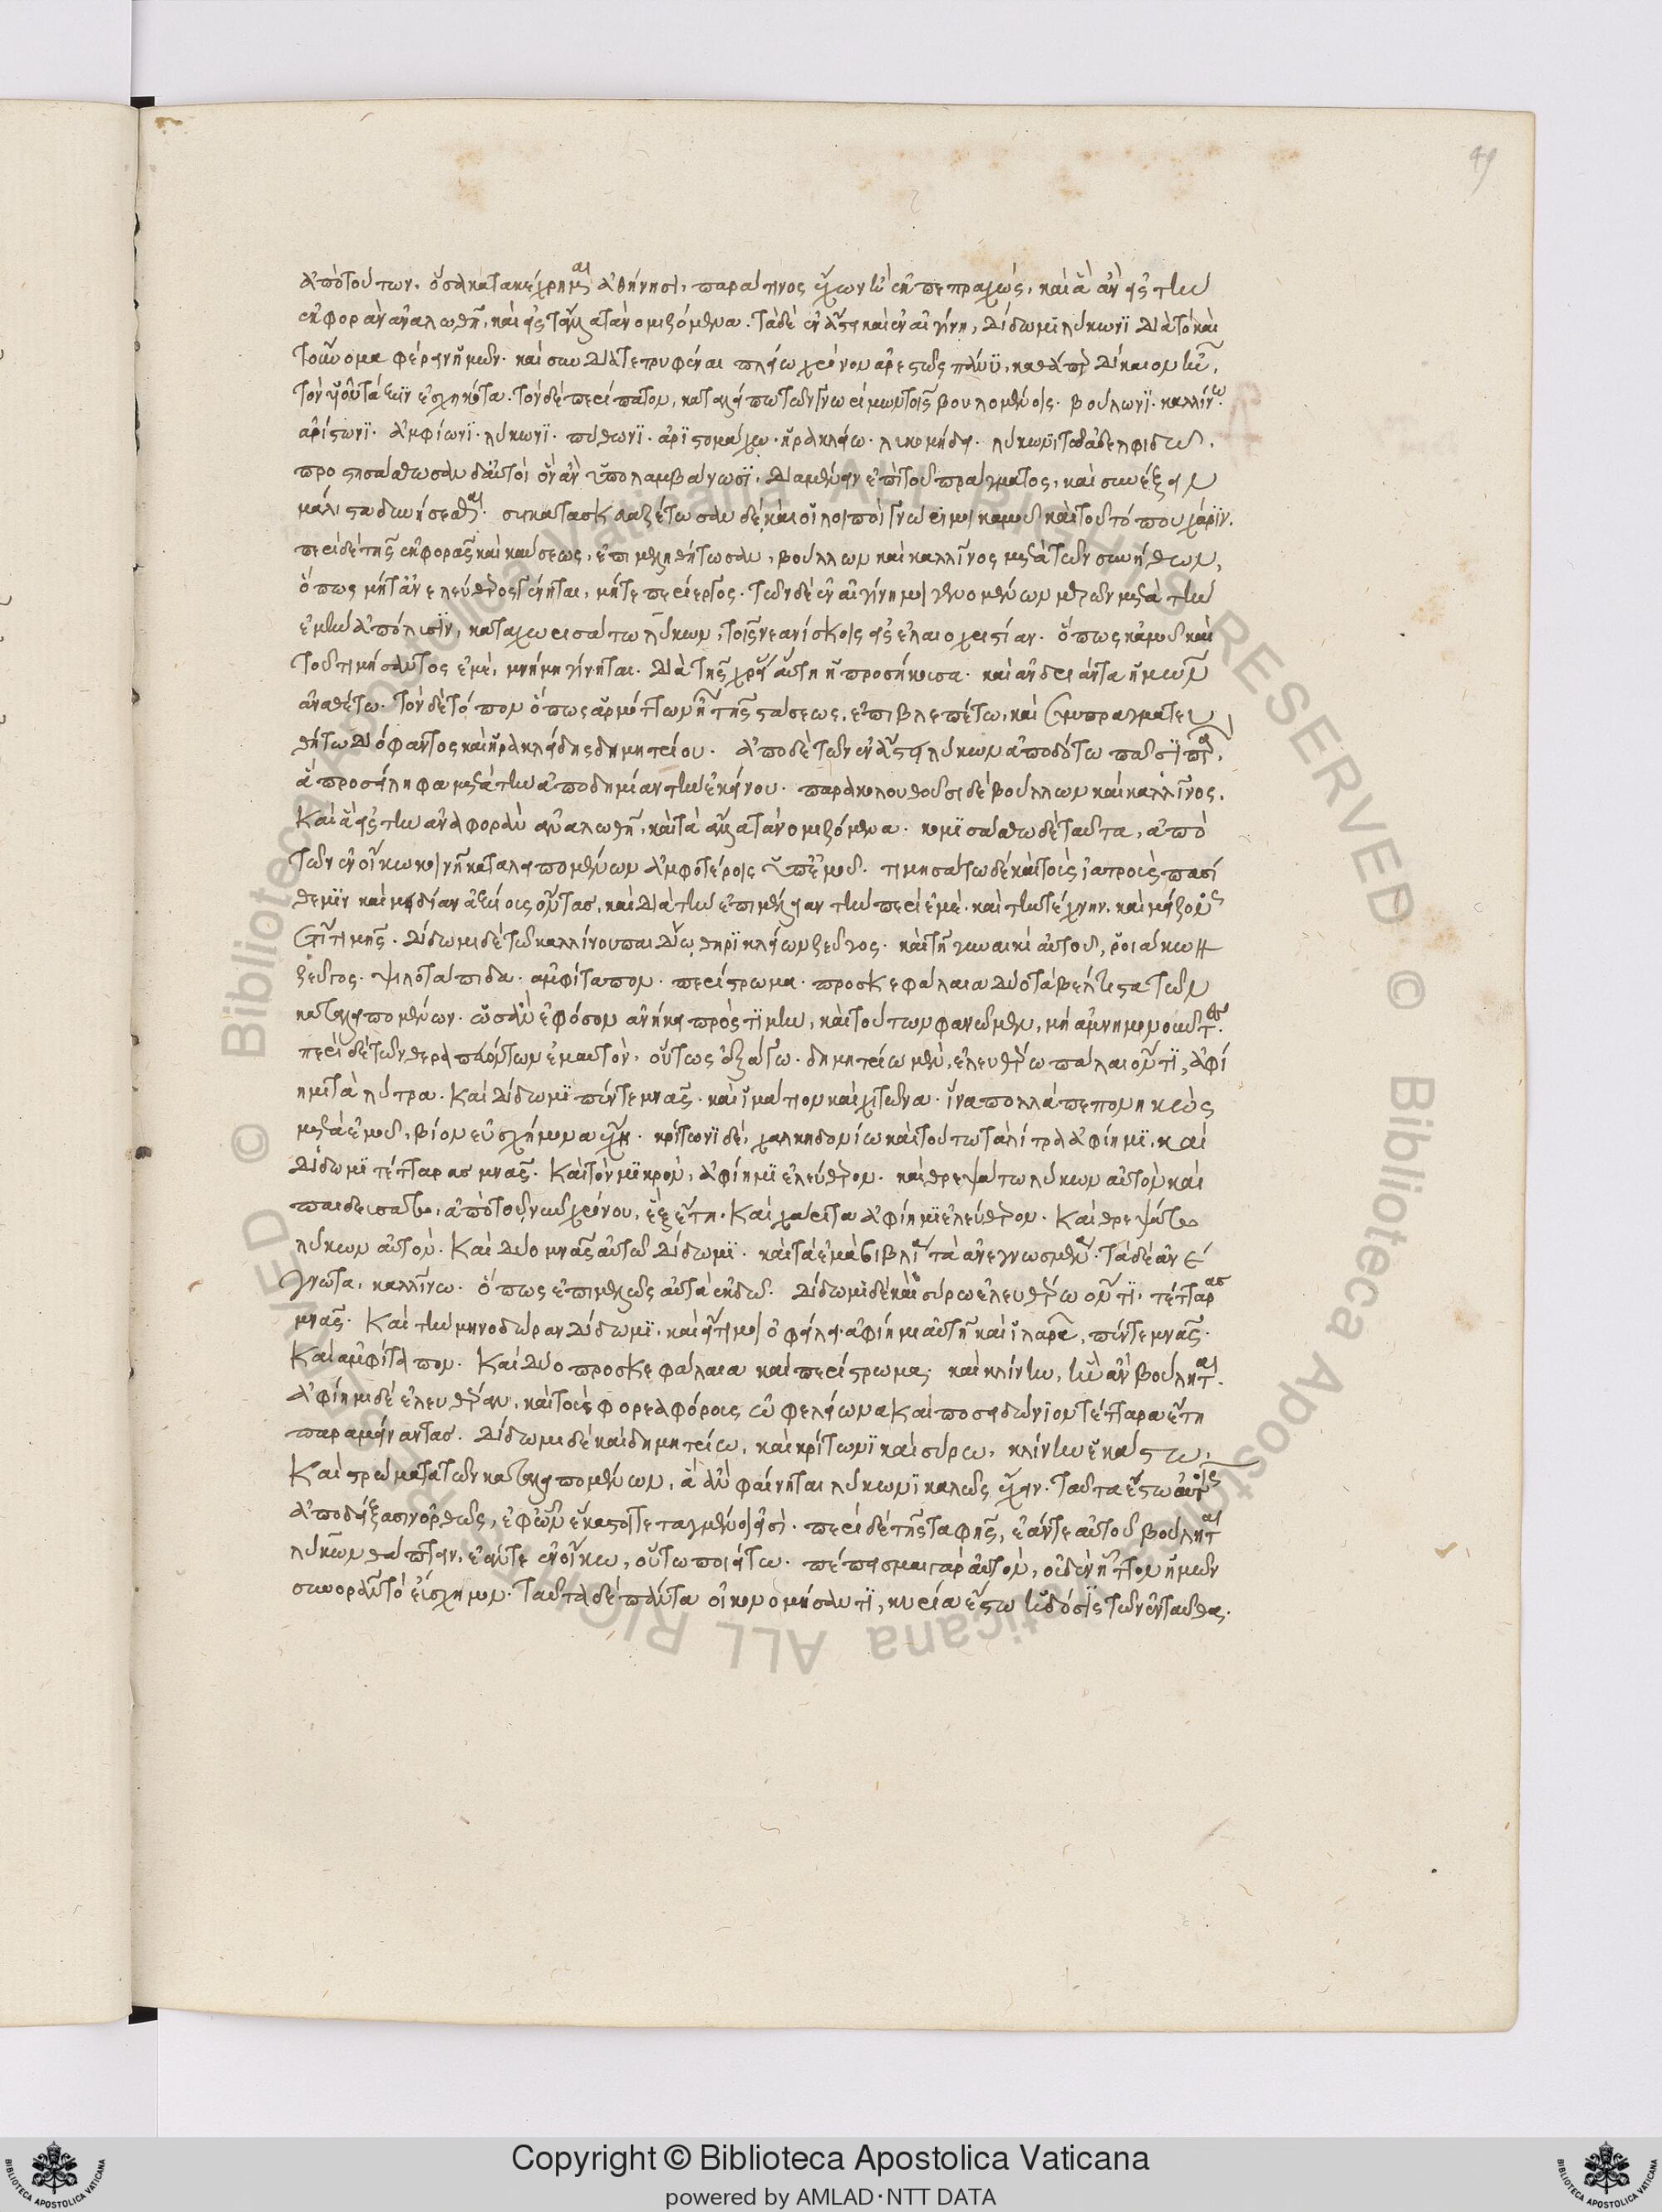 ἀπὸ τούτων. ὅσα κατακέχρημαι ἀθήνησι, παρά τινος ἔχων ἢ ἐκπεπραχώς, καὶ ἃ ἂν εἰς τὴν
ἐκφορὰν ἀναλωθῆ, καὶ εἰς τἄλλα τὰ νομιζόμενα. τὰ δὲ ἐν ἄστει καὶ ἐν αἰγίνη, δίδωμι λύκωνι διὰ τὸ καὶ
τοὔνομα φέρειν ἡμῶν. καὶ συνδιατετριφέναι πλείω χρόνον ἀρεστῶς πάνυ, καθάπερ δίκαιον ἦν,
τὸν υἱοῦ τάξιν ἐσχηκότα. τὸν δὲ περίπατον, καταλείπω τῶν γνωρίμων τοῖς βουλομένοις. βούλωνι. καλλίνω.
ἀρίστωνι. ἀμφίωνι. λύκωνι. πύθωνι. ἀριστομάχω. ἡρακλείω. λυκομήδει. λύκωνι τῶ ἀδελφιδῶ.
προστησάσθωσαν δ' αὐτοὶ ὃν ἂν ὑπολαμβάνωσι, διαμένειν ἐπὶ τοῦ πράγματος, καὶ συνέξειν
μάλιστα δυνήσεσθαι. συγκατασκευαζέτωσαν δὲ καὶ οἱ λοιποὶ γνώριμοι κἀμοῦ καὶ τοῦ τόπου χάριν.
περὶ δὲ τῆς ἐκφορᾶς καὶ καύσεως, ἐπιμεληθήτωσαν, βούλων καὶ καλλῖνος μετὰ τῶν συνήθων,
ὅπως μήτ' ἀνελεύθερος γένηται, μήτε περίεργος. τῶν δὲ ἐν αἰγίνη μοι γενομένων μερῶν μετὰ τὴν
ἐμὴν ἀπόλυσιν, καταχωρισάτω λύκων, τοῖς νεανίσκοις εἰς ἐλαιοχρηστίαν. ὅπως κἀμοῦ καὶ
τοῦ τιμήσαντος ἐμὲ, μνήμη γίνηται. διὰ τῆς χρείας αὕτη ἡ προσήκουσα. καὶ ἀνδριάντα ἡμῶν
ἀναθέτω. τὸν δὲ τόπον ὅπως ἁρμόττων ἦ τῆς στάσεως, ἐπιβλεπέτω, καὶ συμπραγματευ
θήτω διόφαντος καὶ ἡρακλείδης δημητρίου. ἀπὸ δὲ τῶν ἐν ἄστει λύκων ἀποδότω πᾶσι παρ' ὧν
ἃ προσείληφα μετὰ τὴν ἀποδημίαν τὴν ἐκείνου. παρακολουθοῦσι δὲ βούλων καὶ καλλῖνος.
καὶ ἃ εἰς τὴν ἀναφορὰν ἀναλωθῆ, καὶ τὰ ἄλλα τὰ νομιζόμενα. κομισάσθω δὲ ταῦτα, ἀπὸ
τῶν ἐν οἴκω κοινῆ καταλειπομένων ἀμφοτέροις ὑπ' ἐμοῦ. τιμησάτω δὲ καὶ τοῖς ἰατροῖς πασί
θεμιν καὶ μειδίαν ἀξίους ὄντας, καὶ διὰ τὴν ἐπιμέλειαν τὴν περὶ ἐμέ. καὶ τὴν τέχνην. καὶ μείζονος
ἔτι τιμῆς. δίδωμι δὲ τῶ καλλίνου παιδίω, θηρικλείων ζεῦγος. καὶ τῆ γυναικὶ αὐτοῦ, ῥοιάκων
ζεῦγος. ψιλοτάπιδα. ἀμφίταπον. περίστρωμα. προσκεφάλαια δύο τὰ βέλτιστα τῶν
καταλειπομένων. ὡς ἂν ἐφόσον ἀνήκει πρὸς τιμὴν, καὶ τούτων φανῶμεν, μὴ ἀμνημονοῦντες.
περὶ δὲ τῶν θεραπευόντων ἐμαυτὸν, οὕτως ἐξάγω. δημητρίω μὲν, ἐλευθέρω πάλαι ὄντι, ἀφί
ημι τὰ λύτρα. καὶ δίδωμι πέντε μνᾶς. καὶ ἱμάτιον καὶ χιτῶνα. ἵνα πολλὰ πεπονηκὼς
μετὰ ἐμοῦ, βίον εὐσχήμονα ἔχη. κρίτωνι δὲ, χαλκηδονίω καὶ τούτω τὰ λύτρα ἀφίημι, καὶ
δίδωμι τέτταρας μνᾶς. καὶ τὸν μικρὸν, ἀφίημι ἐλεύθερον. καὶ θρεψάτω λύκων αὐτὸν καὶ
παιδευσάτω, ἀπὸ τοῦ νῦν χρόνου, ἓξ ἔτη. καὶ χάρητα ἀφίημι ἐλεύθερον. καὶ θρεψάτω
λύκων αὐτὸν. καὶ δύο μνᾶς αὐτῶ δίδωμι. καὶ τὰ ἐμὰ βιβλία τὰ ἀνεγνωσμένα. τὰ δὲ ἀνέκ
γνωτα, καλλίνω. ὅπως ἐπιμελῶς αὐτὰ ἐκδῶ. δίδωμι δὲ καὶ σύρω ἐλευθέρω ὄντι, τέτταρας
μνᾶς. καὶ τὴν μηνοδώραν δίδωμι, καὶ εἴ τί μοι ὀφείλει ἀφίημι αὐτῆ καὶ ἱλαρᾶ, πέντε μνᾶς.
καὶ ἀμφίταπον. καὶ δύο προσκεφάλαια καὶ περίστρωμα, καὶ κλίνην, ἣν ἂν βούληται.
ἀφίημι δὲ ἐλευθέραν, καὶ τοὺς φορεαφόρους ὠφελείωνα καὶ ποσειδώνιον τέτταρα ἔτη
παραμείναντας. δίδωμι δὲ καὶ δημητρίω, καὶ κρίτωνι καὶ σύρω, κλίνην ἑκάστω.
καὶ στρώματα τῶν καταλειπομένων, ἃ ἂν φαίνηται λύκωνι καλῶς ἔχειν. ταῦτα ἔστω αὐτοῖς
ἀποδείξασιν ὀρθῶς, ἐφ' ὧν ἕκαστοι τεταγμένοι εἰσὶ. περὶ δὲ τῆς ταφῆς, ἐάν τε αὐτοῦ βούληται
λύκων θάπτειν, ἐάν τε ἐν οἴκω, οὕτω ποιείτω. πέπεισμαι γὰρ αὐτὸν, οὐδὲν ἧττον ἡμῶν
συνορᾶν τὸ εὔσχημον. ταῦτα δὲ πάντα οἰκονομήσαντι, κυρία ἔστω ἡ δόσις τῶν ἐνταῦθα.